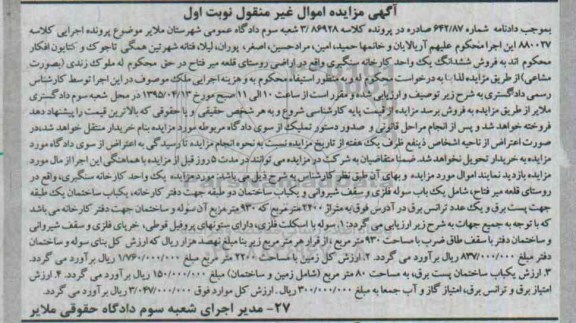 آگهی مزایده اموال غیر منقول نوبت اول
بموجب دادنامه شماره ۶۴۲/۸۷ صادره در پرونده کلاسه ۳/۸۶۹۲۸ شعبه سوم دادگاه عمومی شهرستان ملایر موضوع پرونده اجرایی کلاسه
۸۸۰۰۲۷ این اجرا محکوم علیهم آریالایان و خانمها حمید، امین، مرادحسین، اصغر، پوران، لیلا، فتانه شهرتین همگی تاجوک و کتایون افکار
محکوم اند به فروش ششدانگ یک واحد کارخانه سنگبری واقع در اراضی روستای قلعه میر فتاح در حق محکوم له ملوک زندی (بصورت
مشاعی) از طریق مزایده لذا به درخواست محکوم له و به منظور استیفاء محکوم به و هزینه اجرایی ملک موصوف در این اجرا توسط کارشناس
رسمی دادگستری به شرح زیر توصیف و ارزیابی شده و مقرر است از ساعت ۱۰ الی ۱۱ صبح مورخ ۱۳۹۵/۰۴/۱۳ در محل شعبه سوم دادگستری
ملایر از طریق مزایده به فروش برسد مزایده از قیمت پایه کارشناسی شروع و به هر شخص حقیقی و یا حقوقی که بالاترین قیمت را پیشنهاد دهد
فروخته خواهد شد و پس از انجام مراحل قانونی و صدور دستور تملیک از سوی دادگاه مربوطه مورد مزایده بنام خریدار منتقل خواهد شد، در
صورت اعتراض از ناحیه اشخاص ذینفع ظرف یک هفته از تاریخ مزایده نسبت به نحوه انجام مزایده تا رسیدگی به اعتراض از سوی دادگاه مورد
مزایده به خریدار تحویل نخواهد شد. ضمنا متقاضیان به شرکت در مزایده می توانند در مدت ۵ روز قبل از مزایده با هماهنگی این اجرا از مال مورد
مزایده بازدید نمایند اموال مورد مزایده و بهای آن طبق نظر کارشناس به شرح ذیل می باشد: مورد مزایده یک واحد کارخانه سنگبری، واقع در
روستای قلعه میر فتاح، شامل یک باب سوله فلزی و سقف شیروانی و یکباب ساختمان دو طبقه جهت دفتر کارخانه، یکباب ساختمان یک طبقه
جهت پست برق و یک عدد ترانس برق در آدرس فوق به متراژ ۲۴۰۰ متر مربع که ۹۳۰ متر مربع آن سوله و ساختمان جهت دفتر کارخانه می باشد
که با توجه به جمیع جهات به شرح زیر ارزیابی می گردد: ۱. سوله با اسکلت فلزی، دارای ستونهای پروفیل قوطی، خرپای فلزی و سقف شیروانی
و ساختمان دفتر با سقف طاق ضرب با مساحت ۹۳۰ متر مربع، از قرار هر متر مربع زیر بنا مبلغ نهصد هزار ریال که ارزش کل بنای سوله و ساختمان
دفتر مبلغ ۸۳۷/۰۰۰/۰۰۰ ریال برآورد می گردد. ۲. ارزش کل زمین با مساحت ۲۲۰۰ متر مربع مبلغ ۱/۷۶۰/۰۰۰/۰۰۰ ریال برآورد می گردد.
۳. ارزش یکباب ساختمان پست برق، به مساحت ۸۰ متر مربع (شامل زمین و ساختمان) مبلغ ۱۵۰/۰۰۰/۰۰۰ ریال برآورد می گردد. ۴. ارزش
امتیاز برق و ترانس برق، امتیاز گاز و آب جمعا به مبلغ ۳۰۰/۰۰۰/۰۰۰ ریال. ارزش کل موارد فوق ۳/۰۴۷/۰۰۰/۰۰۰ ریال برآورد می گردد.
۲۷- مدیر اجرای شعبه سوم دادگاه حقوقی ملایر